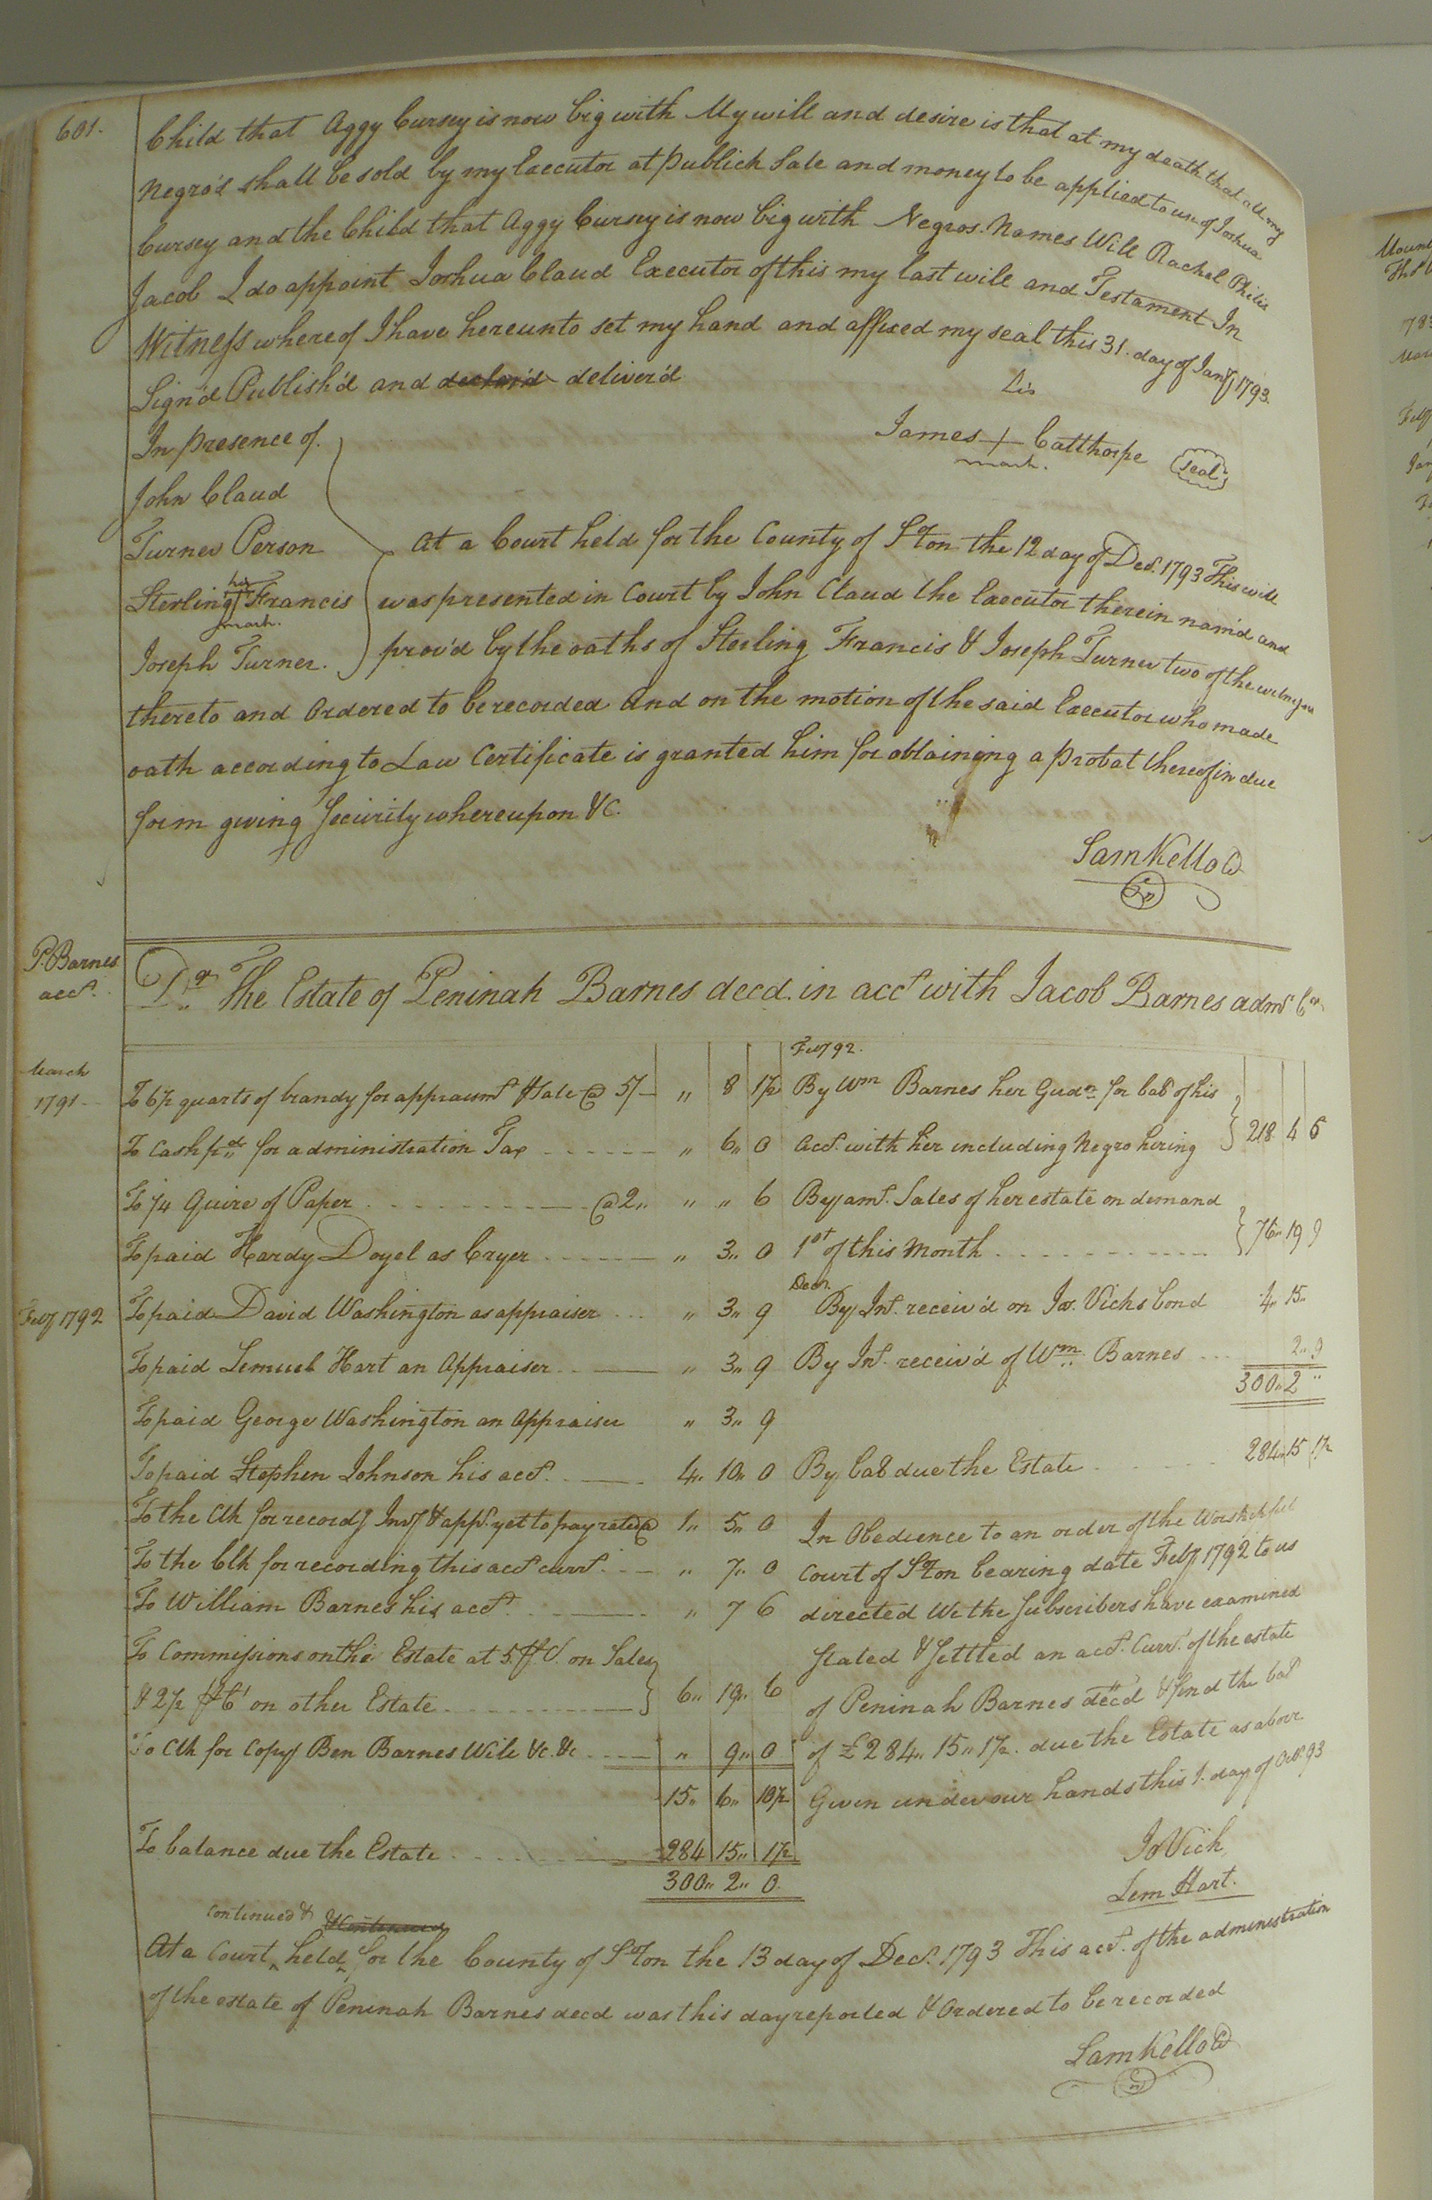 601.
Child that Aggy Cursey is now big with My will and desire is that at my death that all my
Negro's shall be sold by my Executor at Publick Sale and money to be applied to use of Joshua
Cursey and the Child that Aggy Cursey is now big with Negros. Names Will Rachel Philis
Jacob I do appoint Joshua Claud Executor of this my last will and Testament In
Witness whereof I have hereunto set my hand and affixed my seal this 31. day of Jany. 1793.
Sign'd Publish'd and declar'd deliver'd
In presence of.
his
James + Calthorpe seal
mark.
John Claud
Turner Person
his
Sterling Francis
mark.
Joseph Turner.
At a Court held for the County of S.ton the 12 day of Dec.r 1793 This will
was presented in Court by John Claud the Executor therein nam'd and
prov'd by the oaths of Sterling Francis & Joseph Turner two of the witnesses
thereto and Ordered to be recorded And on the motion of the said Executor who made
oath according to Law Certificate is granted him for obtaining a Probat thereof in due
form giving Security whereupon &C.
Sam Kello Cl
P. Barnes
acct.
Dr. The Estate of Peninah Barnes decd. in acct with Jacob Barnes admr. Cr.
March
1791
Feby 92.
To 6½ quarts of brandy for appraismt. & Sale @ 5/ " 8 1½ By Wm Barnes her Gudn. for bal of his
To Cash pd. for administration Tax " 6 " 0 acct. with her including Negro hiring 218 4 6
To ¼ Quire of Paper @ 2 " " " 6 By amt. Sales of her estate on demand
To paid Hardy Doyel as Cryer " 3 " 0 1st of this Month 76 " 19 9
Feby 1792
Decr.
To paid David Washington as appraiser " 3 " 9 By Int. receiv'd on Jos. Vicks bond 4 " 15 "
To paid Lemuel Hart an Appraiser " 3 " 9 By Int. receiv'd of Wm. Barnes 2 " 9
300 " 2 "
To paid George Washington an Appraiser " 3 " 9
To paid Stephen Johnson his acct. 4 " 10 " 0 By bal due the Estate 284 " 15 1½
To the Clk for recordg Invy & appt. yet to pay rated @ 1 " 5 " 0 In Obedience to an order of the Worshipful
To the Clk for recording this acct curt. " 7 " 0 Court of S.ton bearing date Feby. 1792 to us
To William Barnes his acct. " 7 6 directed We the Subscribers have examined
To Commissions on the Estate at 5 P Ct. on Sales stated & settled an acct. Curt. of the estate
& 2½ P Ct on other Estate 6 " 19 " 6 of Peninah Barnes decd & find the bal
To Clk for Copy Ben Barnes Will &c. &c " 9 " 0 of £284 " 15 " 1½ due the Estate as above
15 " 6 " 10½ Given under our hands this 1. day of Octr. 93
To balance due the Estate 284 15 " 1½
300 " 2 " 0
Jo Vick
Lem Hart.
continued & & Continued
At a Court held for the County of S.ton the 13 day of Dec.r 1793 This acct. of the administration
of the estate of Peninah Barnes decd was this day reported & Ordered to be recorded
Sam Kello Cl